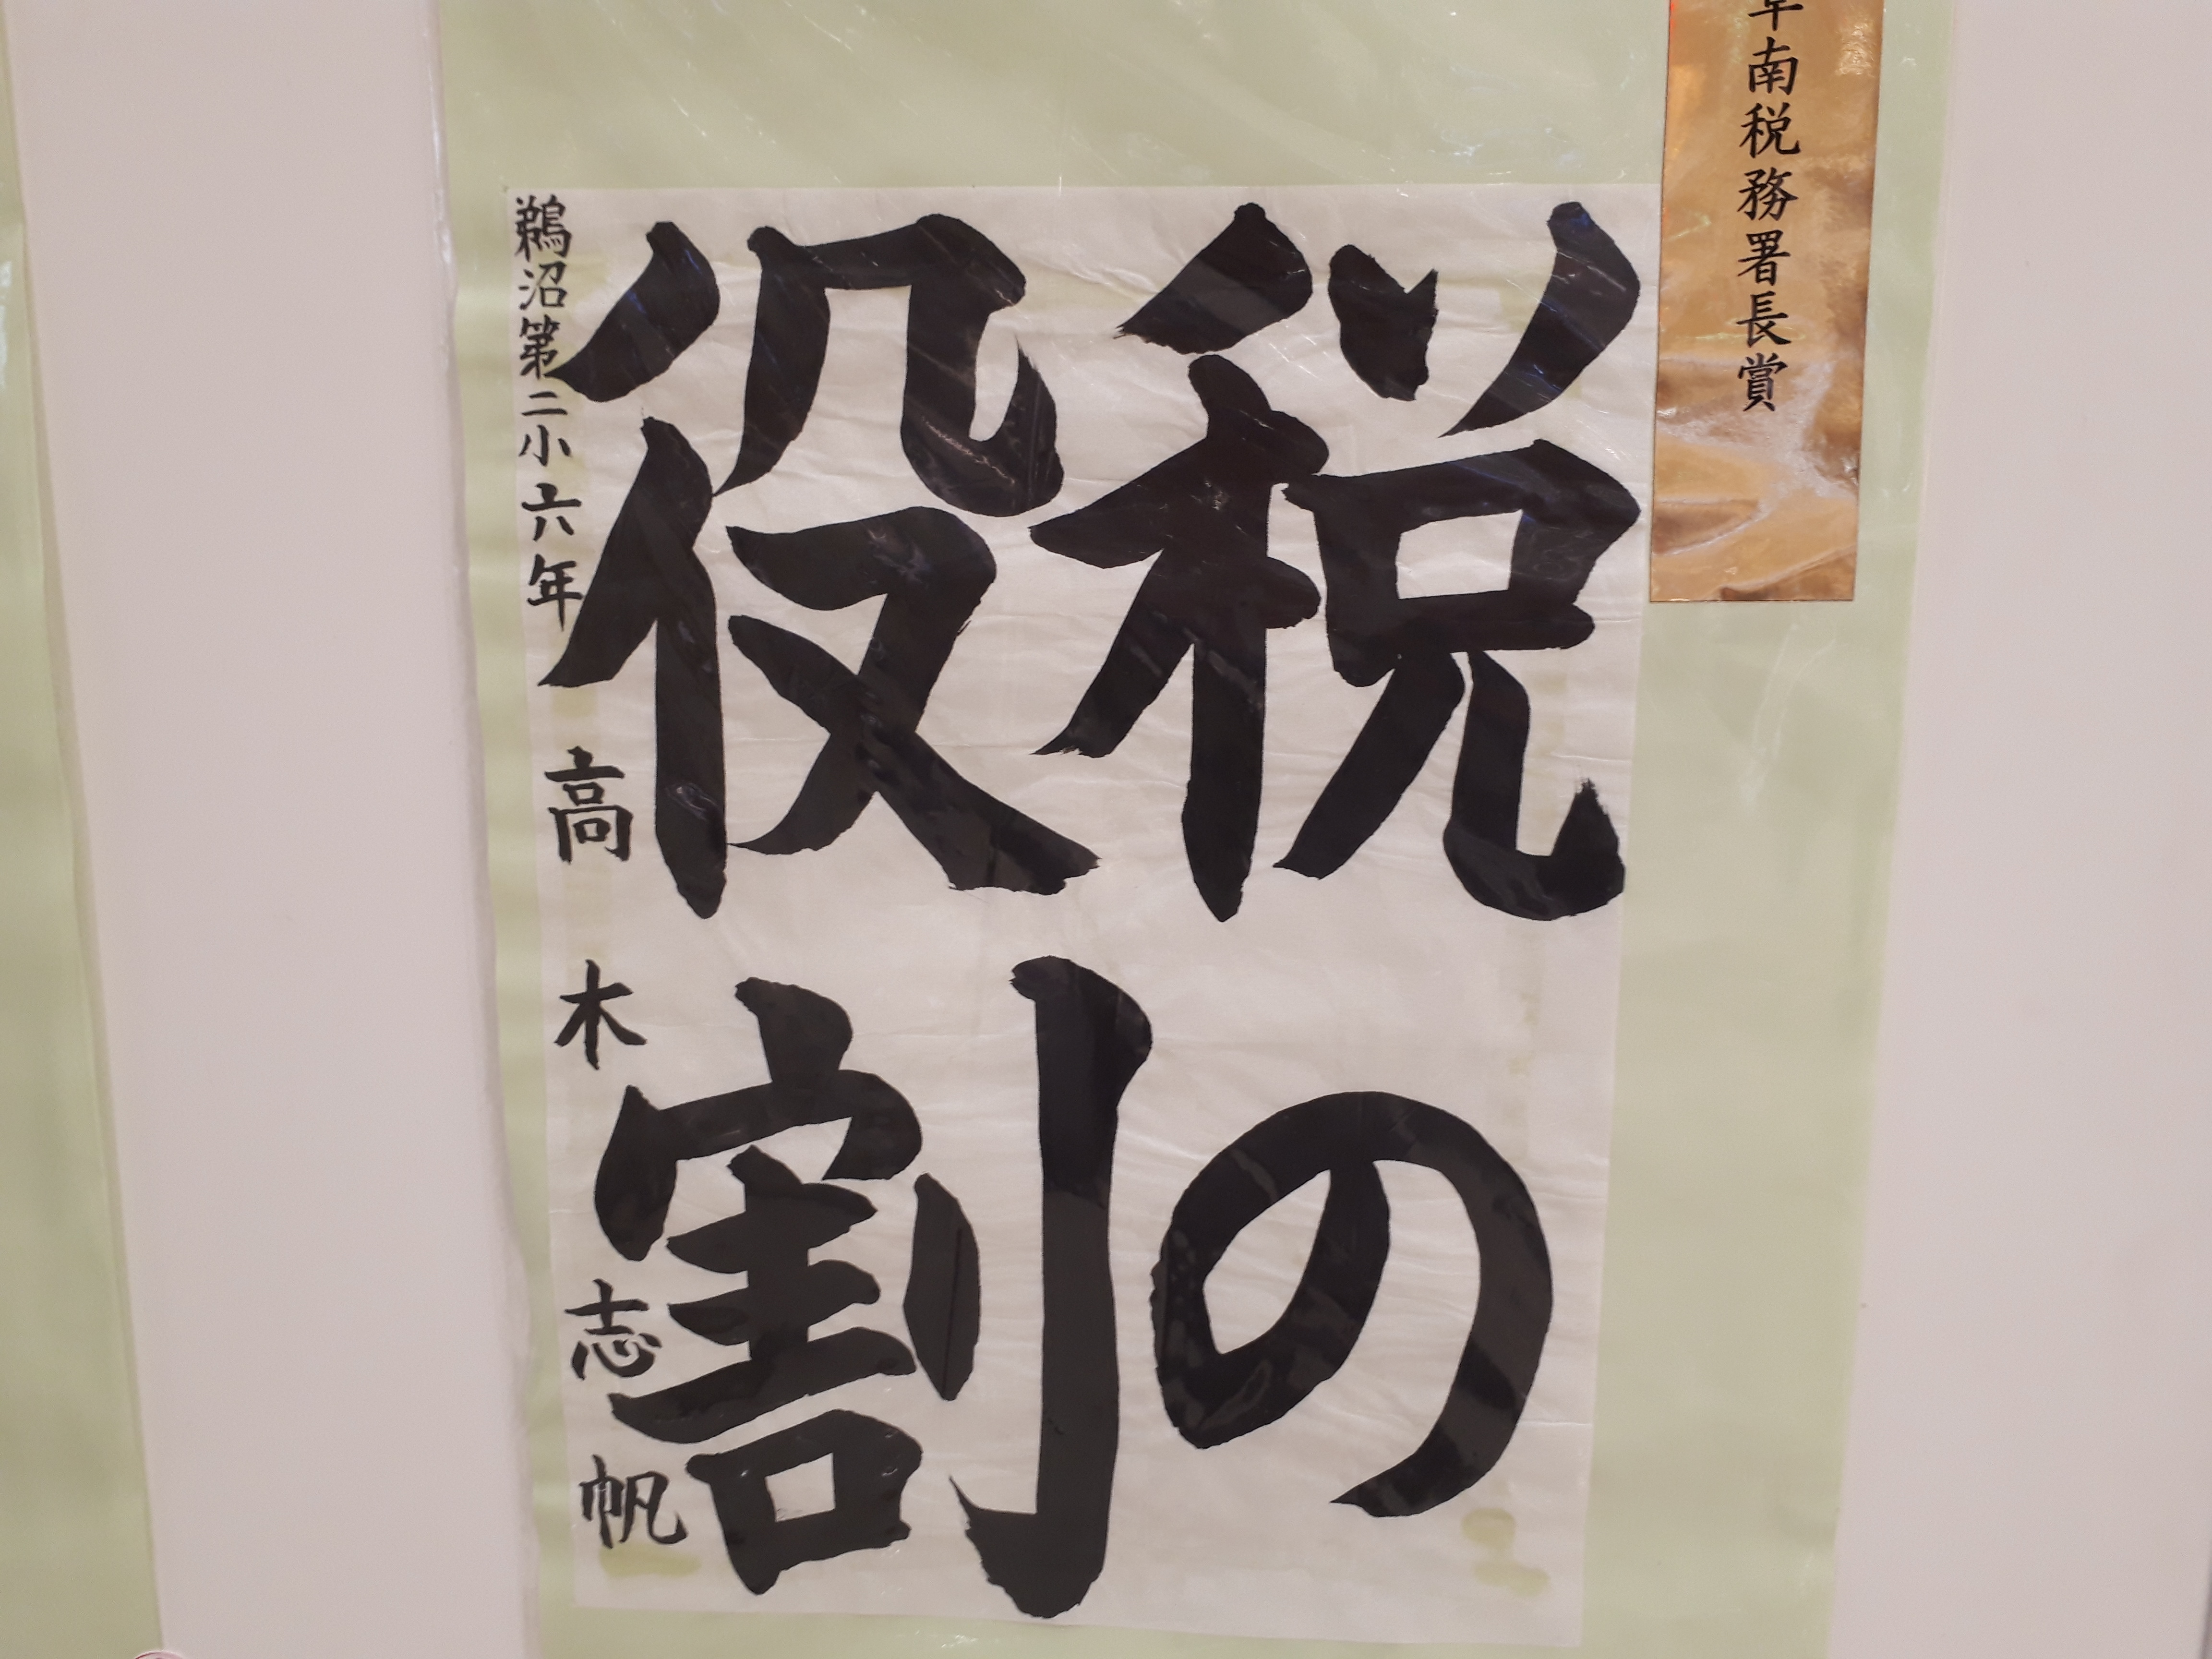 岐阜南税務署長賞
税の
役割
鵜沼第二小六年 高木志帆